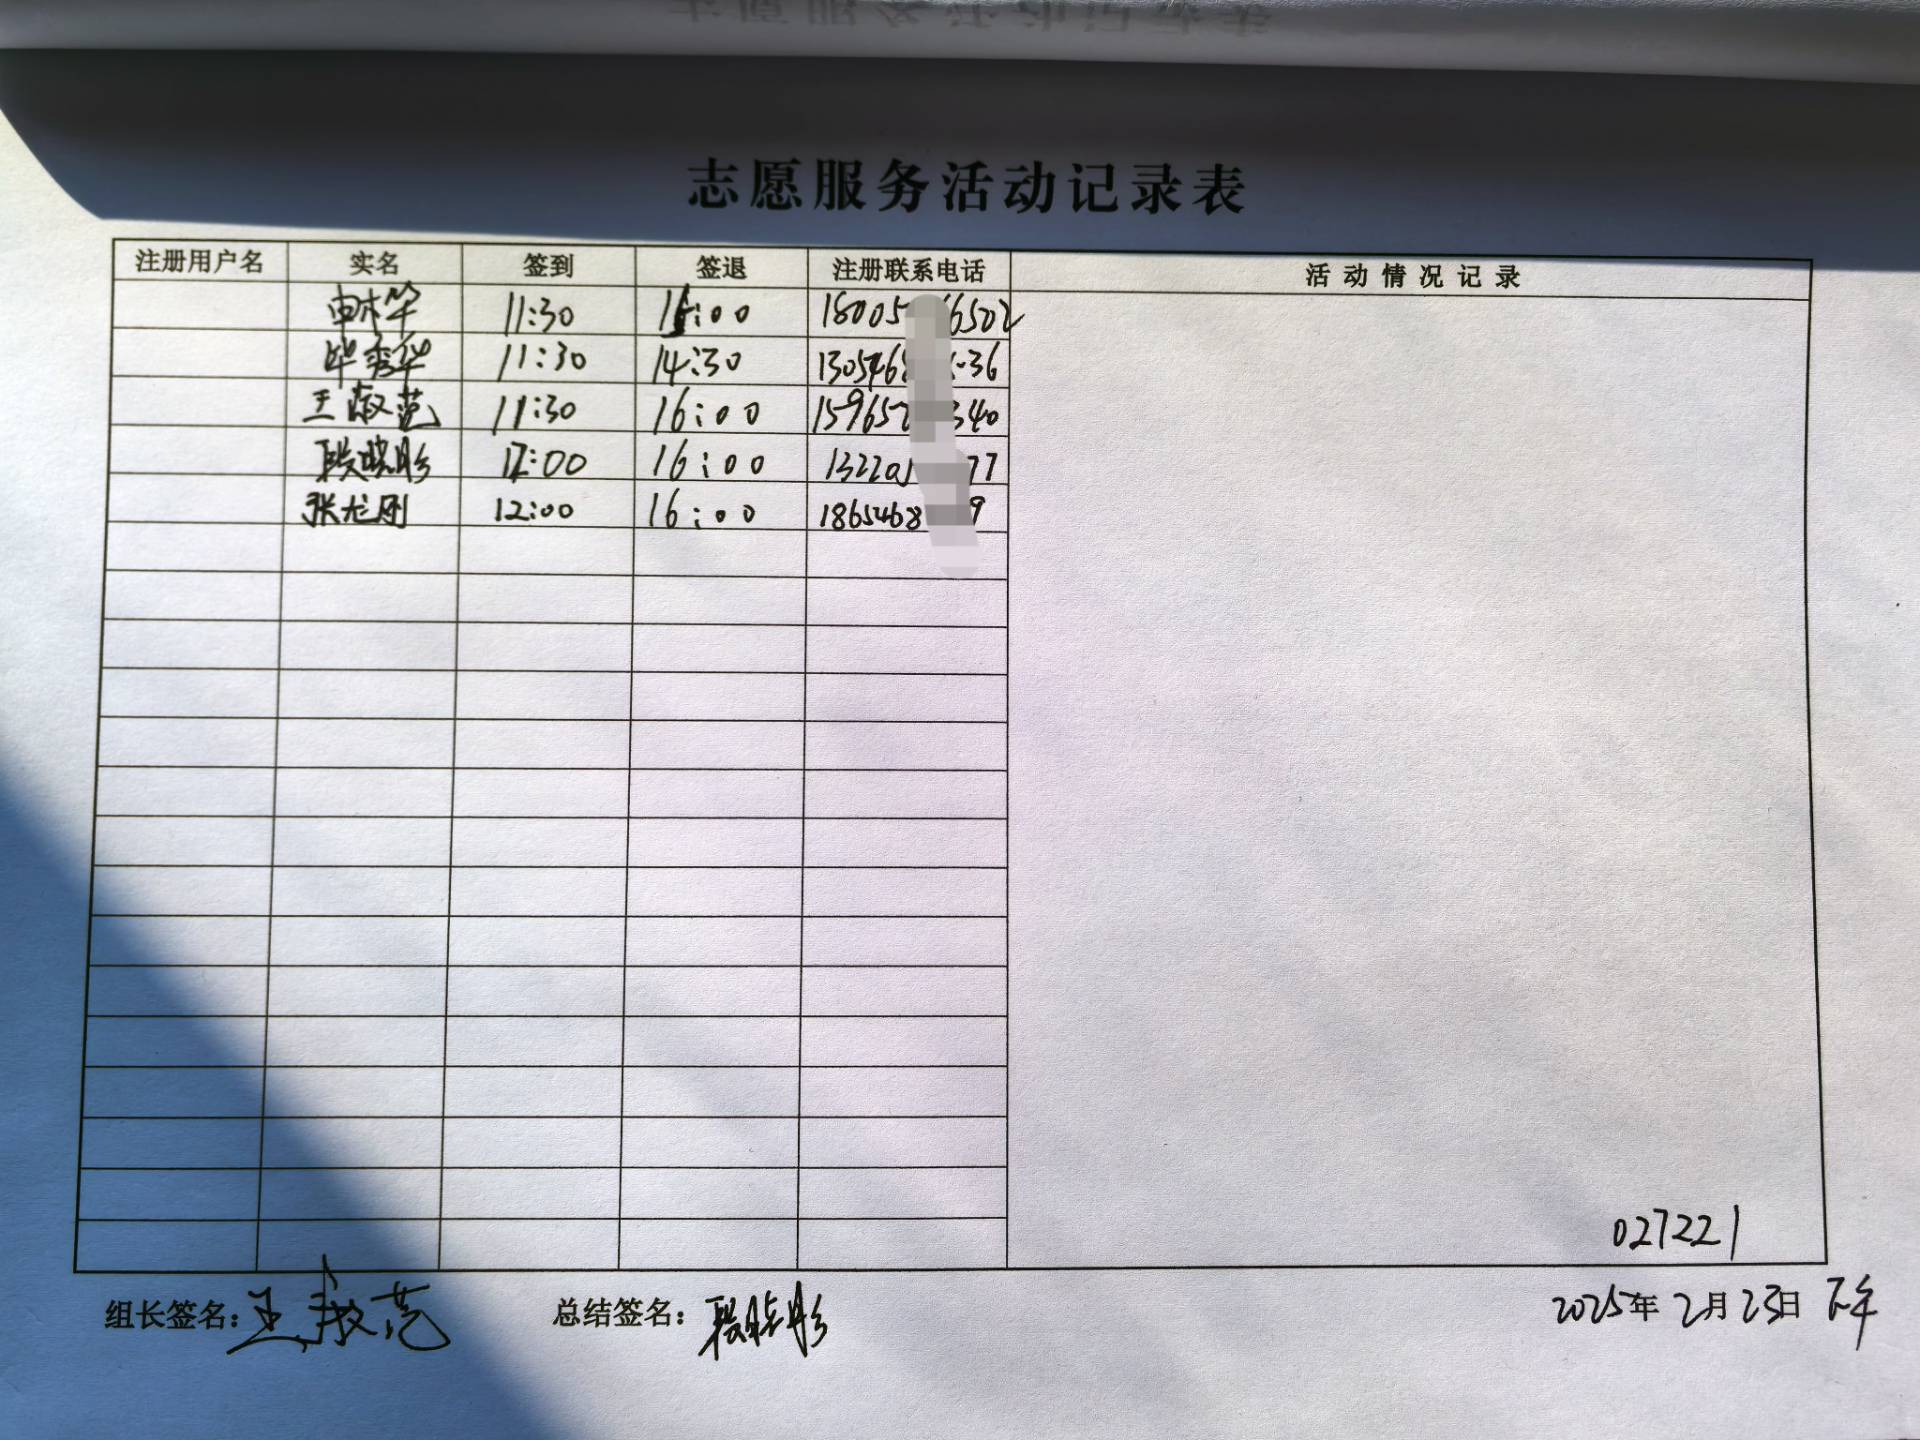 志愿服务活动记录表
注册用户名 实名 签到 签退 注册联系电话 活动情况记录
11:30 16:00 18005 6502
毕秀华 11:30 14:30 1305468 36
王淑范 11:30 16:00 159652 340
段晓彤 12:00 16:00 13220 77
张龙刚 12:00 16:00 1865468 9
027221
组长签名:王淑范 总结签名:段晓彤 2025年2月23日 下午